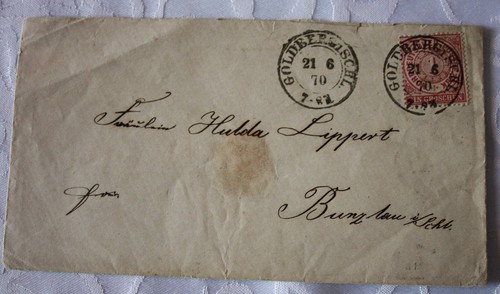 GOLDBERG I/SCHL.
21 6
70
7-8V.
GOLDBERG I/SCHL.
21 6
70
GROSCHEN
Fräulein Hulda Lippert
fr.
Bunzlau i/Schl.